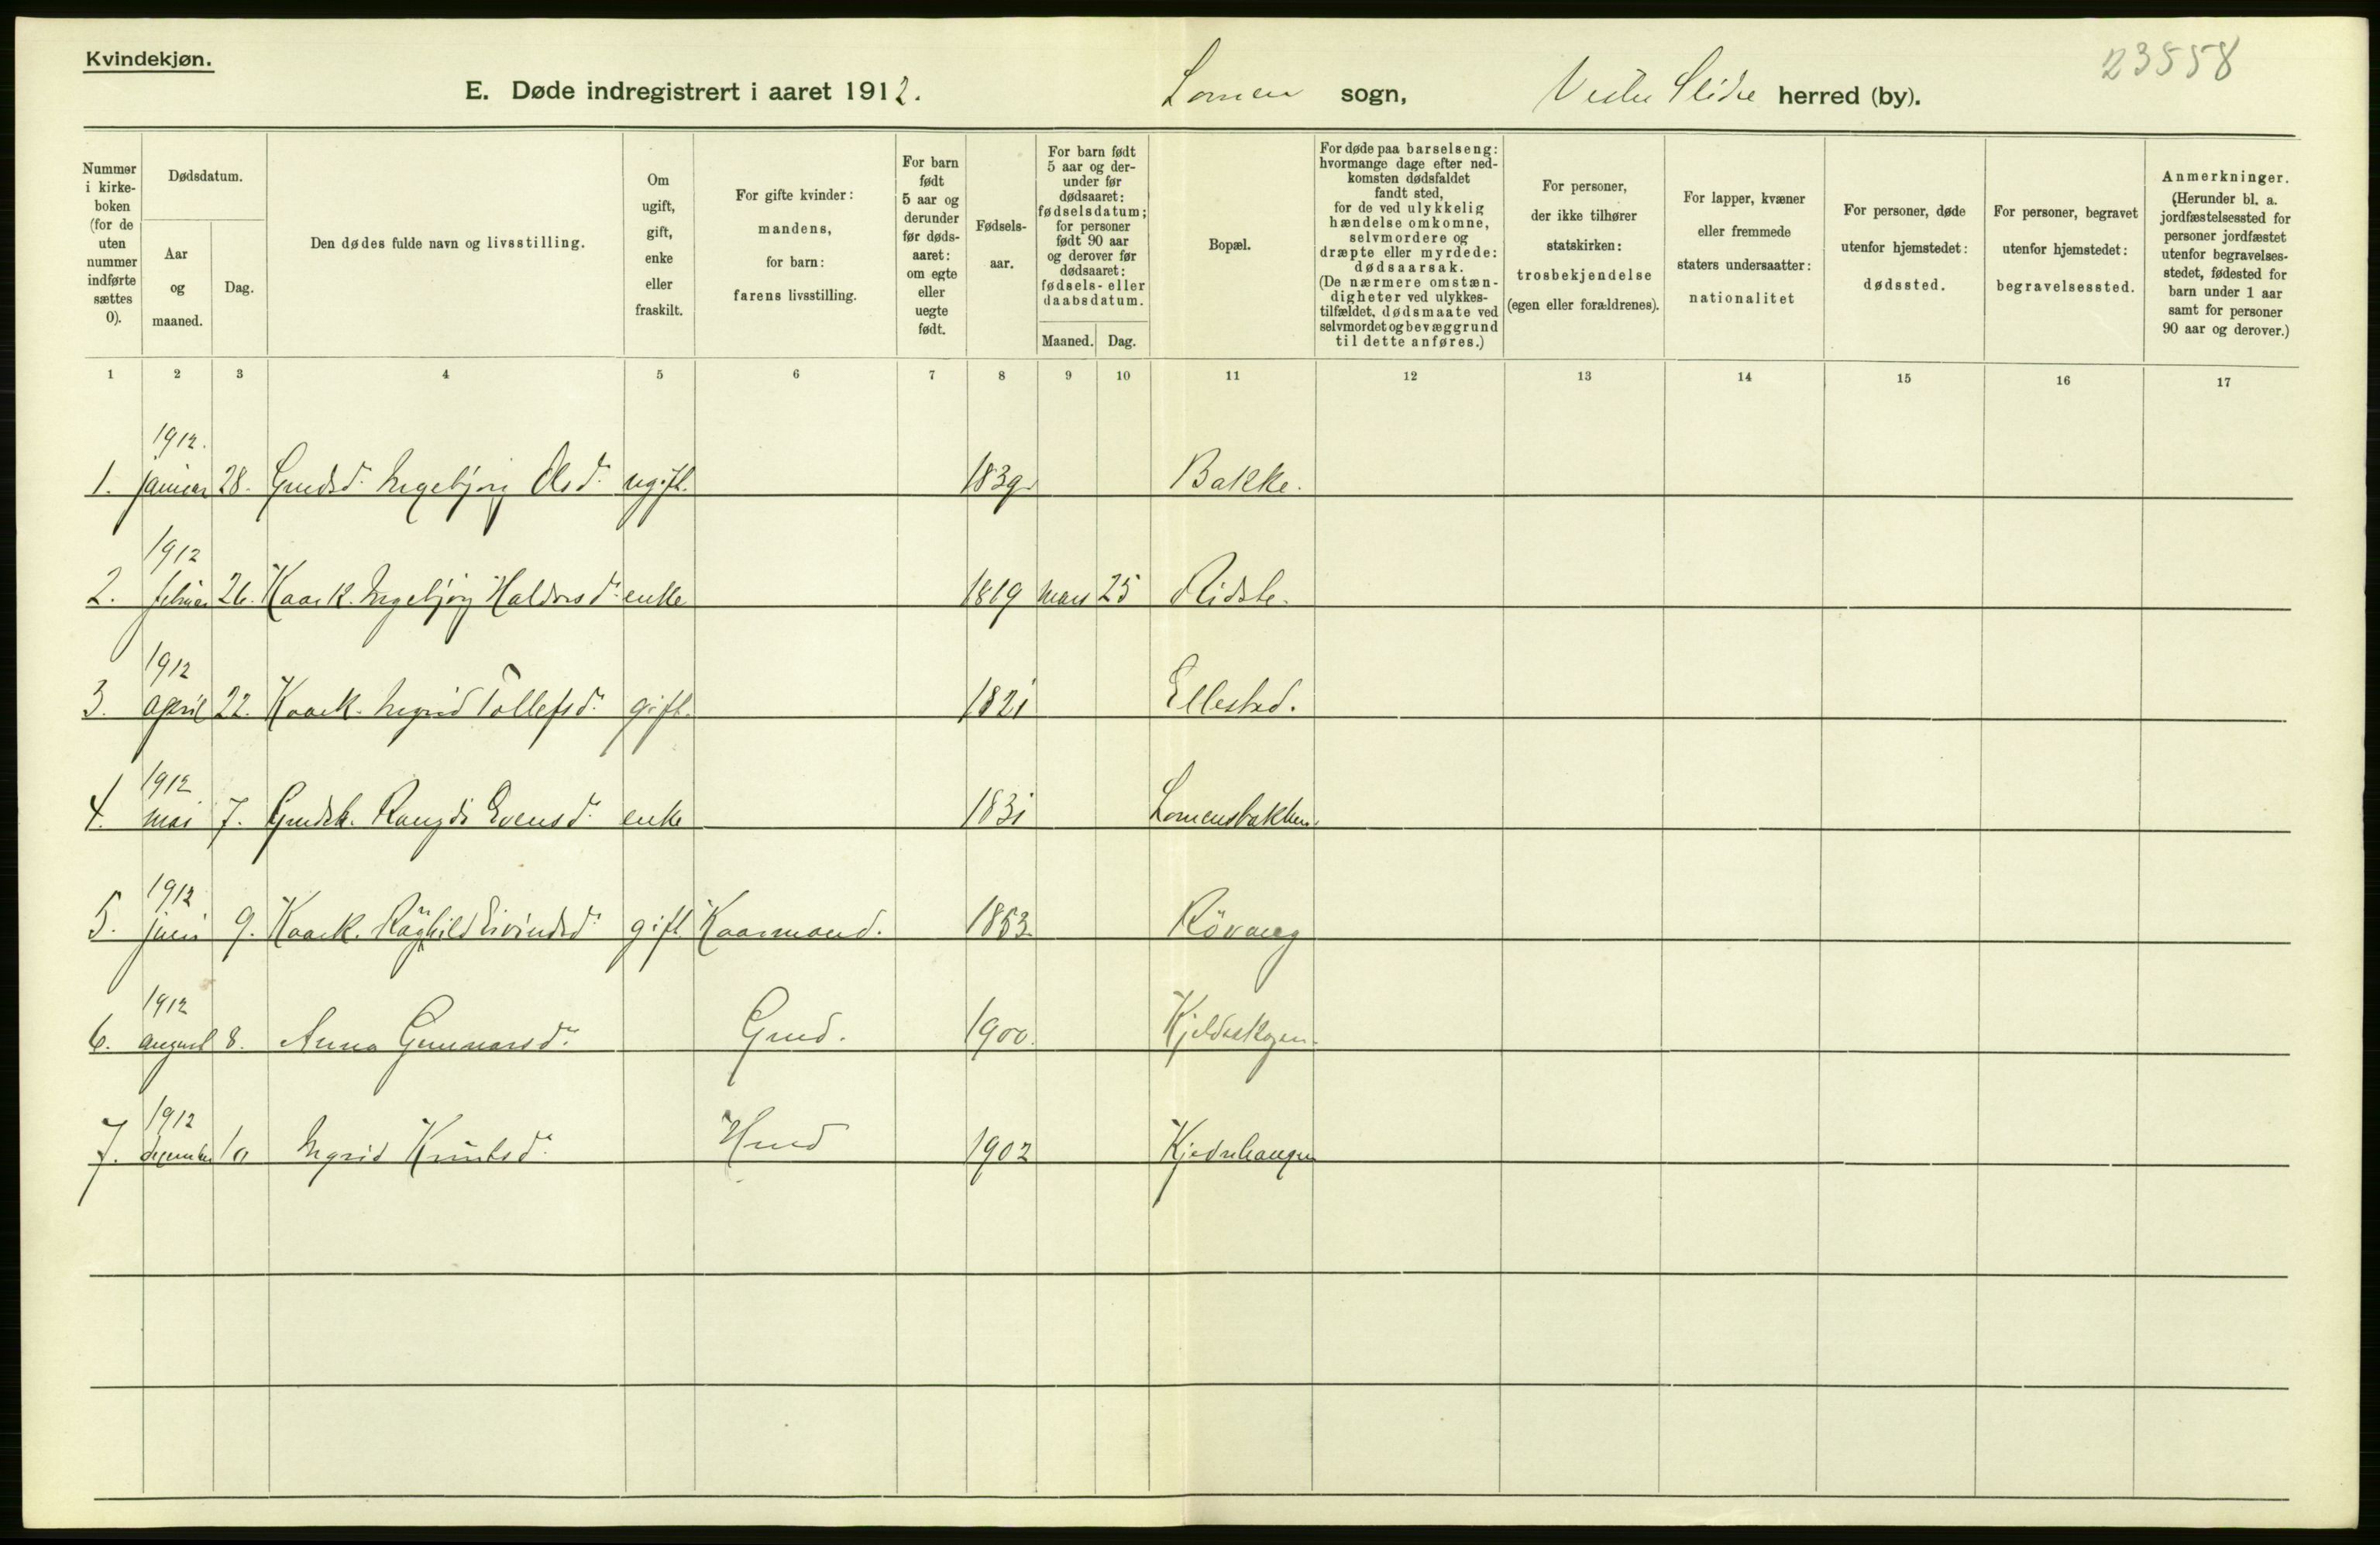 Kvindekjøn.
23558
E. Døde indregistrert i aaret 1912. Lomen sogn, Vestre Slidre herred (by).
Nummer i kirke- boken (for de uten nummer indførte sættes 0).
Dødsdatum.
Aar og maaned.
Dag.
Den dødes fulde navn og livsstilling.
Om ugift, gift, enke eller fraskilt.
For gifte kvinder: mandens, for barn: farens livsstilling.
For barn født 5 aar og derunder før døds- aaret: om egte eller uegte født.
Fødsels- aar.
For barn født 5 aar og der- under før dødsaaret: fødselsdatum; for personer født 90 aar og derover før dødsaaret: fødsels- eller daabsdatum.
Maaned. Dag.
Bopæl.
For døde paa barselseng: hvormange dage efter ned- komsten dødsfaldet fandt sted, for de ved ulykkelig hændelse omkomne, selvmordere og dræpte eller myrdede: dødsaarsak. (De nærmere omstæn- digheter ved ulykkes- tilfældet, dødsmaate ved selvmordet og bevæggrund til dette anføres.)
For personer, der ikke tilhører statskirken: trosbekjendelse (egen eller forældrenes).
For lapper, kvæner eller fremmede staters undersaatter: nationalitet
For personer, døde utenfor hjemstedet: dødssted.
For personer, begravet utenfor hjemstedet: begravelsessted.
Anmerkninger. (Herunder bl. a. jordfæstelsessted for personer jordfæstet utenfor begravelses- stedet, fødested for barn under 1 aar samt for personer 90 aar og derover.)
1 2 3 4 5 6 7 8 9 10 11 12 13 14 15 16 17
1912.
1. januar 28. Gmdsd. Ingebjørg Olsd. ugift. 1839. Bakke.
1912
2. februar 26. Kaark. Ingebjørg Haldorsd. enke 1819 mars 25 Ridste.
1912
3. april 22. Kaark. Ingrid Tollefsd. gift. 1821 Ellestad.
1912
4. mai 7. Gmdsk. Rangdi Evensd. enke 1831 Lomensbakken.
1912
5. juni 9. Kaark. Ragnhild Eivindsd. gift Kaarmand. 1853. Rövang
1912
6. august 8. Anna Gunnarsd. Gmd. 1900. Kjeldeskogen.
1912
7. december Ingrid Knutsd. Hmd 1902 Kjednhaugen